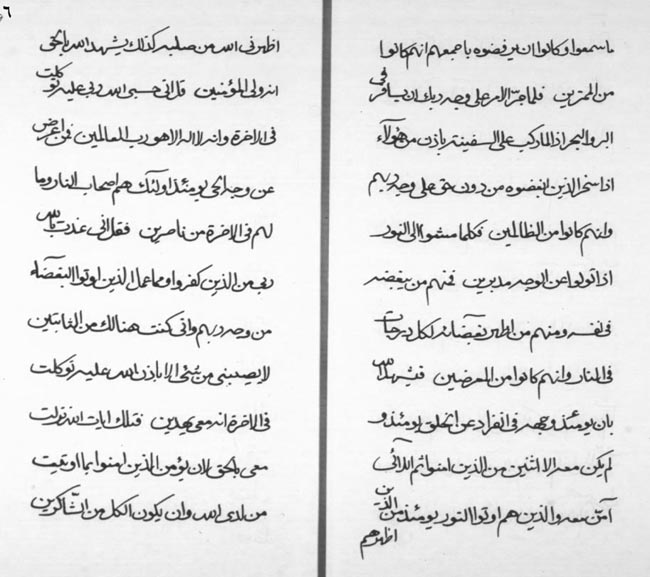 ما سمعوا و كانوا ان يرفضوه باجمعهم انهم كانوا
من الممترين فلما جرّ الامر على وجه ربك ان يسافر فى
البر و البحر اذا ركب على السفينة باذن من هؤلاء
اذا سخر الذين ابغضوه من دون حق على وجه ربهم
و انهم كانوا من الظالمين فكلما مشوا الى النور
اذا تولوا عن الوجه مدبرين فمنهم من يبغضه
فى نفسه و منهم من اظهر بغضائه لكل درجات
فى النار و انهم كانوا من المعرضين فيشهد الله
بان يومئذ وجهه فى انفراد عن الخلق يومئذ و
لم يكن معه الا اثنين من الذين امنوا ثم الذى
آمن معه و الذين هم اوتوا النور يومئذ من الذين
اظهرهم
٦
اظهرنى الله من صلبه كذلك يشهد الله بالحق
انه ولى المؤمنين قل انى حسبى الله ربى عليه توكلت
فى الاخرة و انه لا اله الا هو رب العالمين فمن اعرض
عن وجه الحق يومئذ اولئك هم اصحاب النار و ما
لهم فى الاخرة من ناصرين فقل انى عذت بالله
ربى من الذين كفروا و مما عمل الذين اوتوا البغضآء
من وجه ربهم و انى كنت هنالك من الثابتين
لا يصيبنى من شئ الا باذن الله عليه توكلت
فى الاخرة انه معى يهدين فتلك ايات الله نزلت
معى بالحق لان يؤمن الذين امنوا بما اوتيت
من لدى الله و ان يكون الكل من الشاكرين